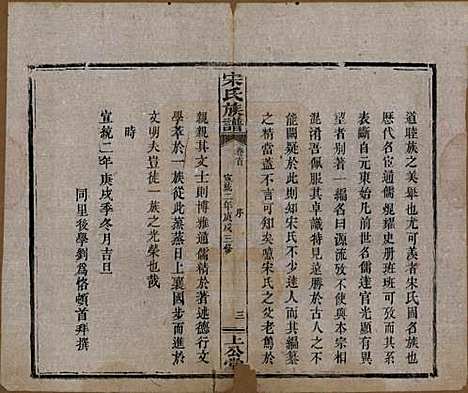 道睦族之美舉也尤可羨者宋氏固名族也
歷代名臣通儒焜燿史册班班可考其世系
表斷自元東始先前世名儒達官光顯有異
望者别著一編名曰源流攷不使與本宗相
混淆吾佩服其卓識特見遠勝於古人之不
能闕疑于此則知宋氏不少達人而其編纂
之精當蓋不言可知矣噫宋氏之父老篤於
宋氏族譜
卷首
序
宣統二年庚戌三修
三
上公堂
親親其文士則博雅通儒精於著述德行文
學萃於一族從此蒸蒸日上襄國步而進於
文明夫豈徒一族之光榮也哉
時
宣統二年庚戌季冬月吉旦
同里後學劉爲恪頓首拜撰